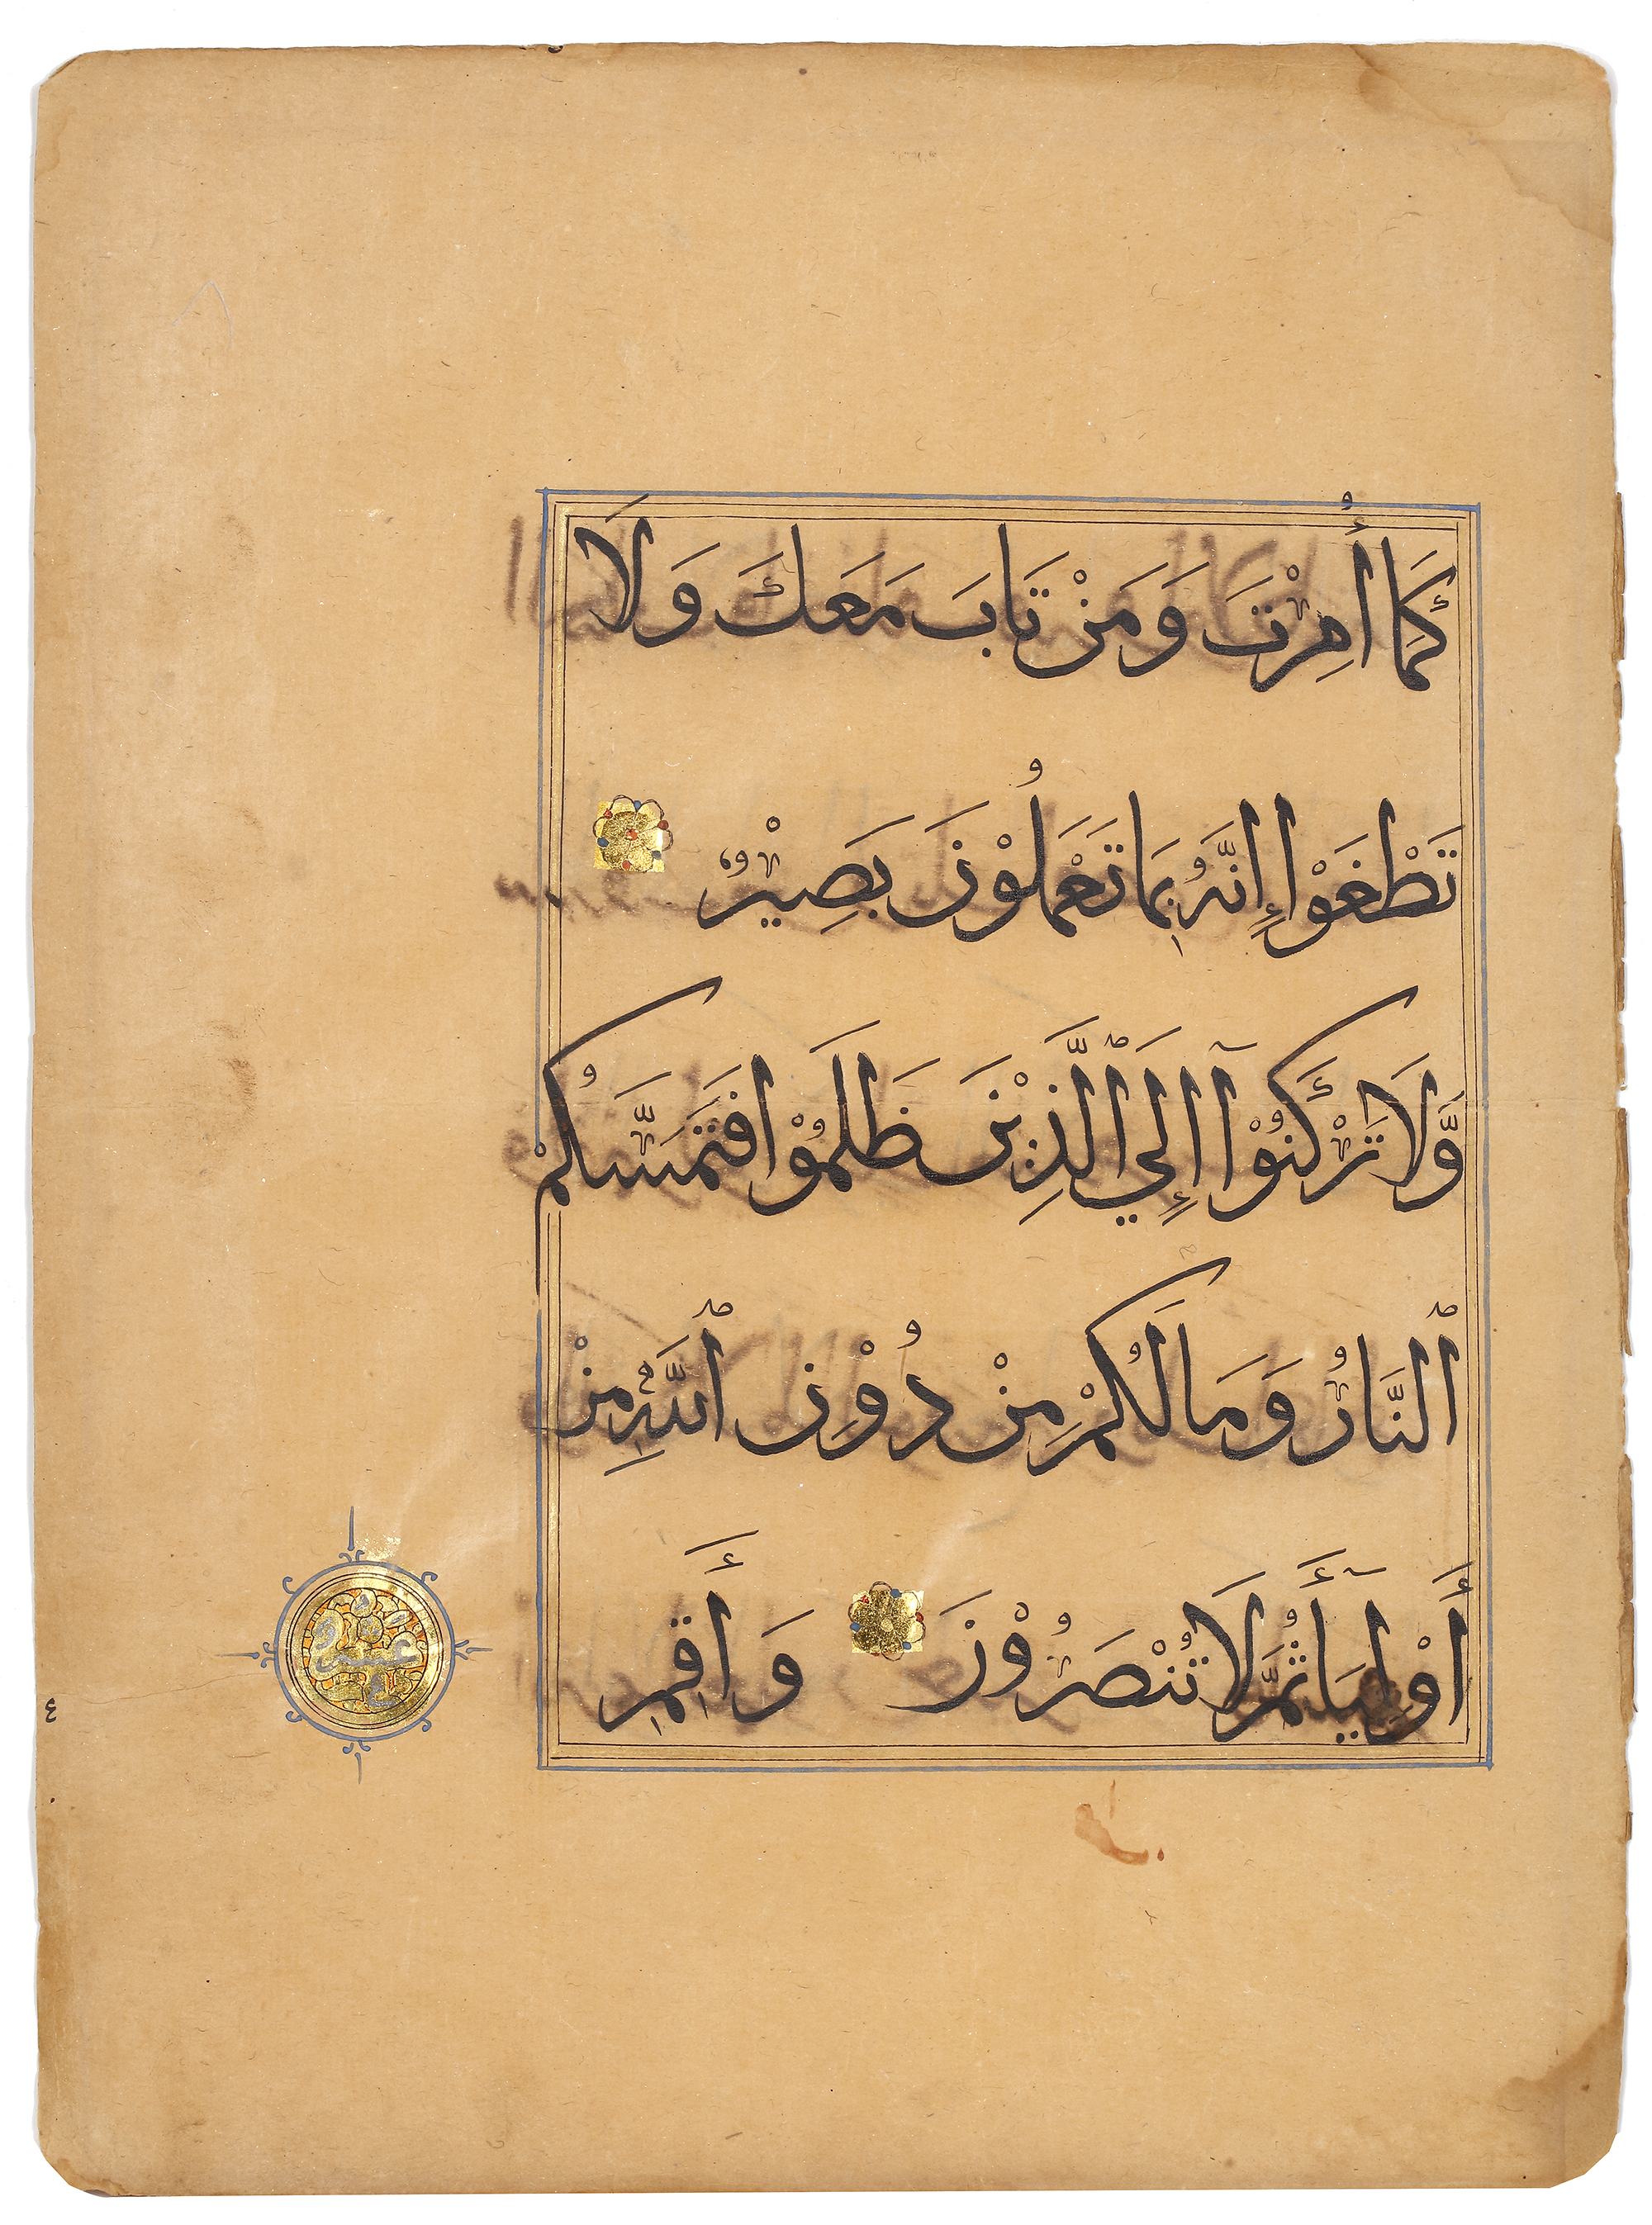 كَمَا أُمِرْتَ وَمَنْ تَابَ مَعَكَ وَلَا
تَطْغَوْا إِنَّهُ بِمَا تَعْمَلُوْنَ بَصِيْرٌ
وَّلَا تَرْكَنُوْآ إِلَي ٱلَّذِيْنَ ظَلَمُوْا فَتَمَسَّكُمْ
ٱلنَّارُ وَمَا لَكُمْ مِنْ دُوْنِ ٱللَّهِ مِنْ
أَوْلِيَآأَ ثُمَّ لَا تُنْصَرُوْنَ وَأَقِمِ
عشر
٤